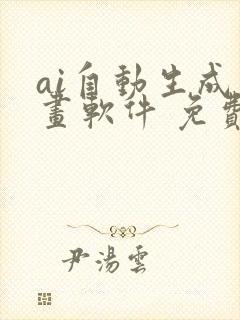 ai自動生成
畫軟件 免費
尹湯雲